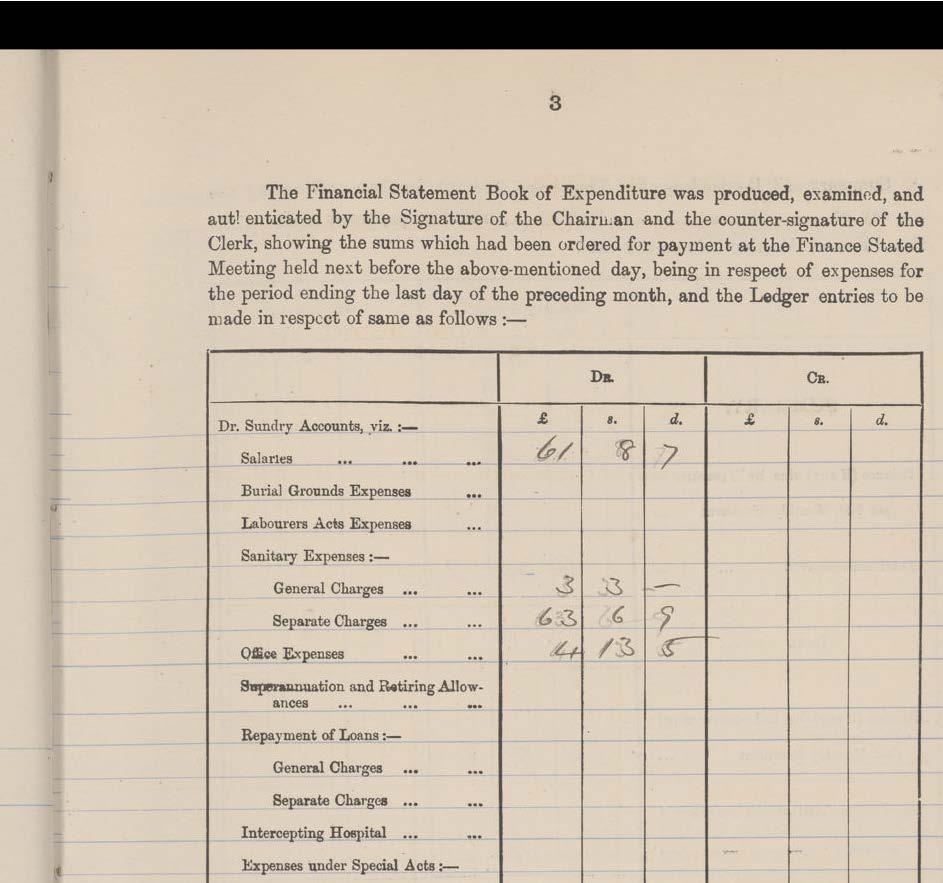 3
The Financial Statement Book of Expenditure was produced, examined, and
authenticated by the Signature of the Chairman and the counter-signature of the
Clerk, showing the sums which had been ordered for payment at the Finance Stated
Meeting held next before the above-mentioned day, being in respect of expenses for
the period ending the last day of the preceding month, and the Ledger entries to be
made in respect of same as follows :—
DR. CR.
Dr. Sundry Accounts, viz. :— £ s. d. £ s. d.
Salaries ... ... ... 61 8 7
Burial Grounds Expenses ...
Labourers Acts Expenses ...
Sanitary Expenses :—
General Charges ... ... 3 3 —
Separate Charges ... ... 63 6 9
Office Expenses ... ... 4 13 5
Superannuation and Retiring Allow-
ances ... ... ...
Repayment of Loans :—
General Charges ... ...
Separate Charges ... ...
Intercepting Hospital ... ...
Expenses under Special Acts :—